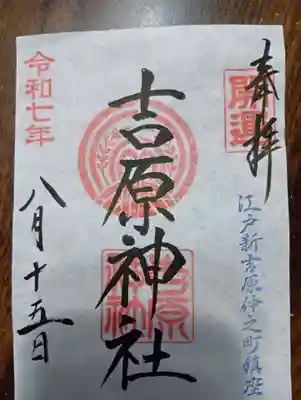 奉拝
開運
江戸新吉原仲之町鎮座
吉原神社
令和七年
八月十五日